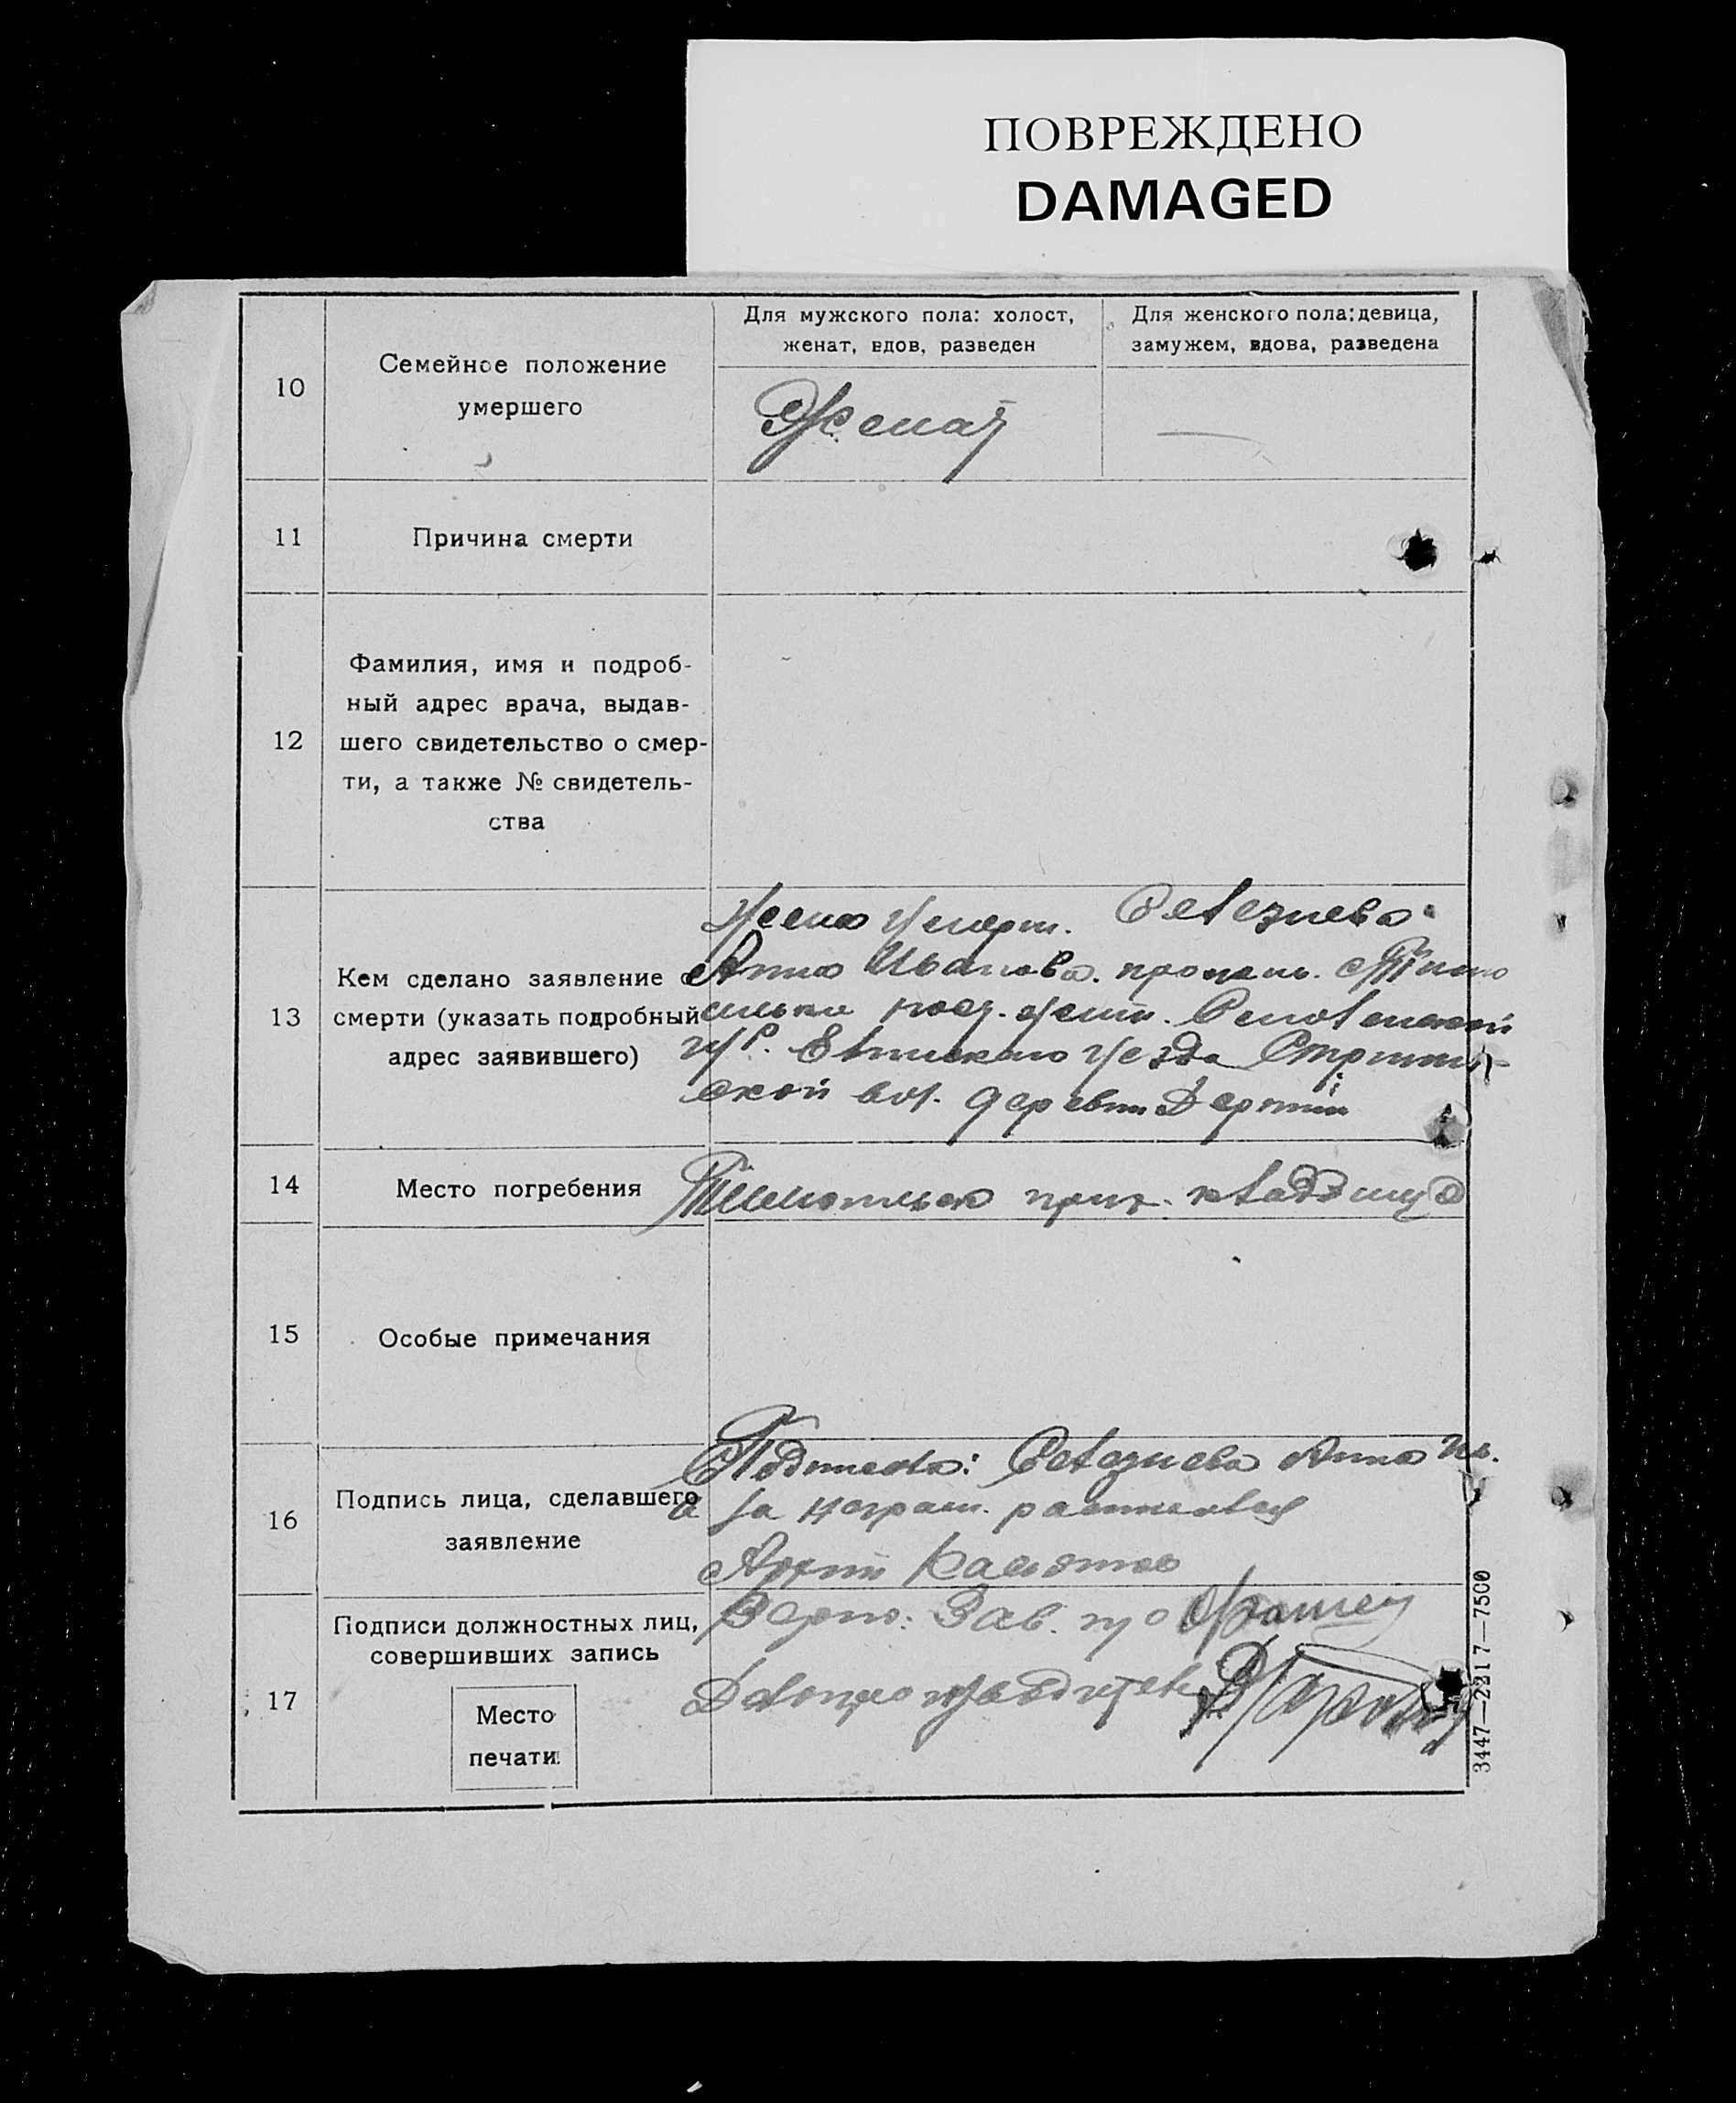 ПОВРЕЖДЕНО
DAMAGED
10
Семейное положение
умершего
Для мужского пола: холост,
женат, вдов, разведен
Для женского пола: девица,
замужем, вдова, разведена
Женат
11
Причина смерти
12
Фамилия, имя и подроб-
ный адрес врача, выдав-
шего свидетельство о смер-
ти, а также № свидетель-
ства
13
Кем сделано заявление о
смерти (указать подробный
адрес заявившего)
Жена умерш. Селезнева
Анна Иванова.
Смоленской
губ. Ельнского уезда
ской вол. деревни
14
Место погребения
кладбище
15
Особые примечания
16
Подпись лица, сделавшего
заявление
Подписала: Селезнева Анна Ив.
а за неграм. расписался
17
Подписи должностных лиц,
совершивших запись
Место
печати
Верно: Зав. п/о
Делопроизводитель
3447—2217—7500